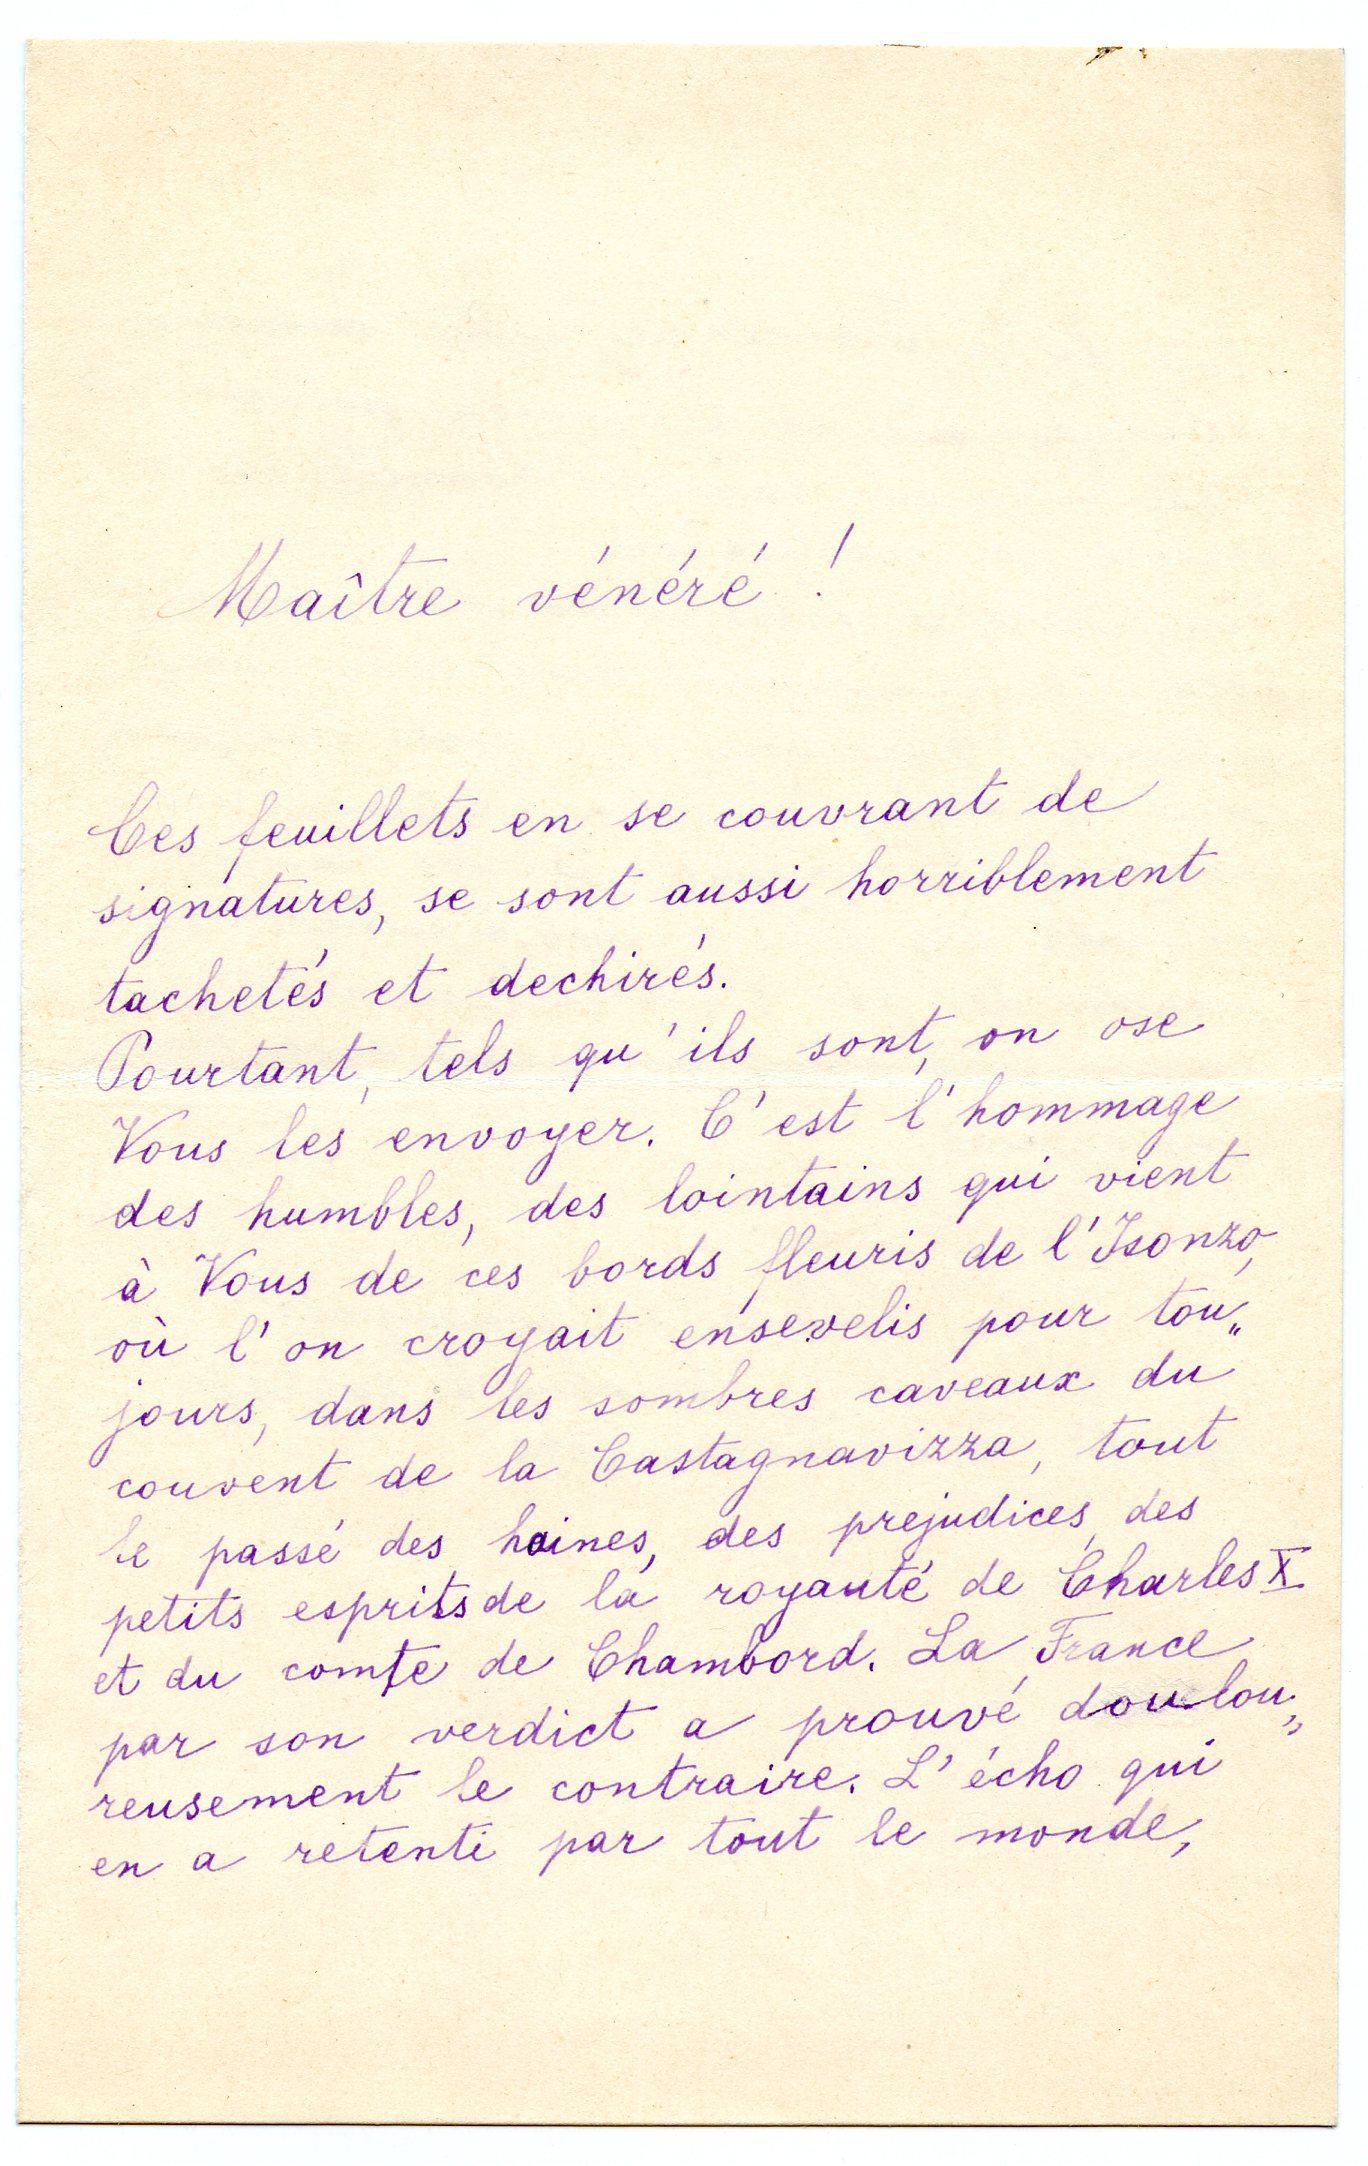 Maître vénéré !
Ces feuillets en se couvrant de
signatures, se sont aussi horriblement
tachetés et dechirés.
Pourtant, tels qu'ils sont, on ose
Vous les envoyer. C'est l'hommage
des humbles, des lointains qui vient
à Vous de ces bords fleuris de l'Isonzo,
où l'on croyait ensevelis pour tou„
jours, dans les sombres caveaux du
couvent de la Castagnavizza, tout
le passé des haines, des prejudices, des
petits esprits de la royauté de Charles X
et du comte de Chambord. La France
par son verdict a prouvé doulou„
reusement le contraire. L'écho qui
en a retenti par tout le monde,